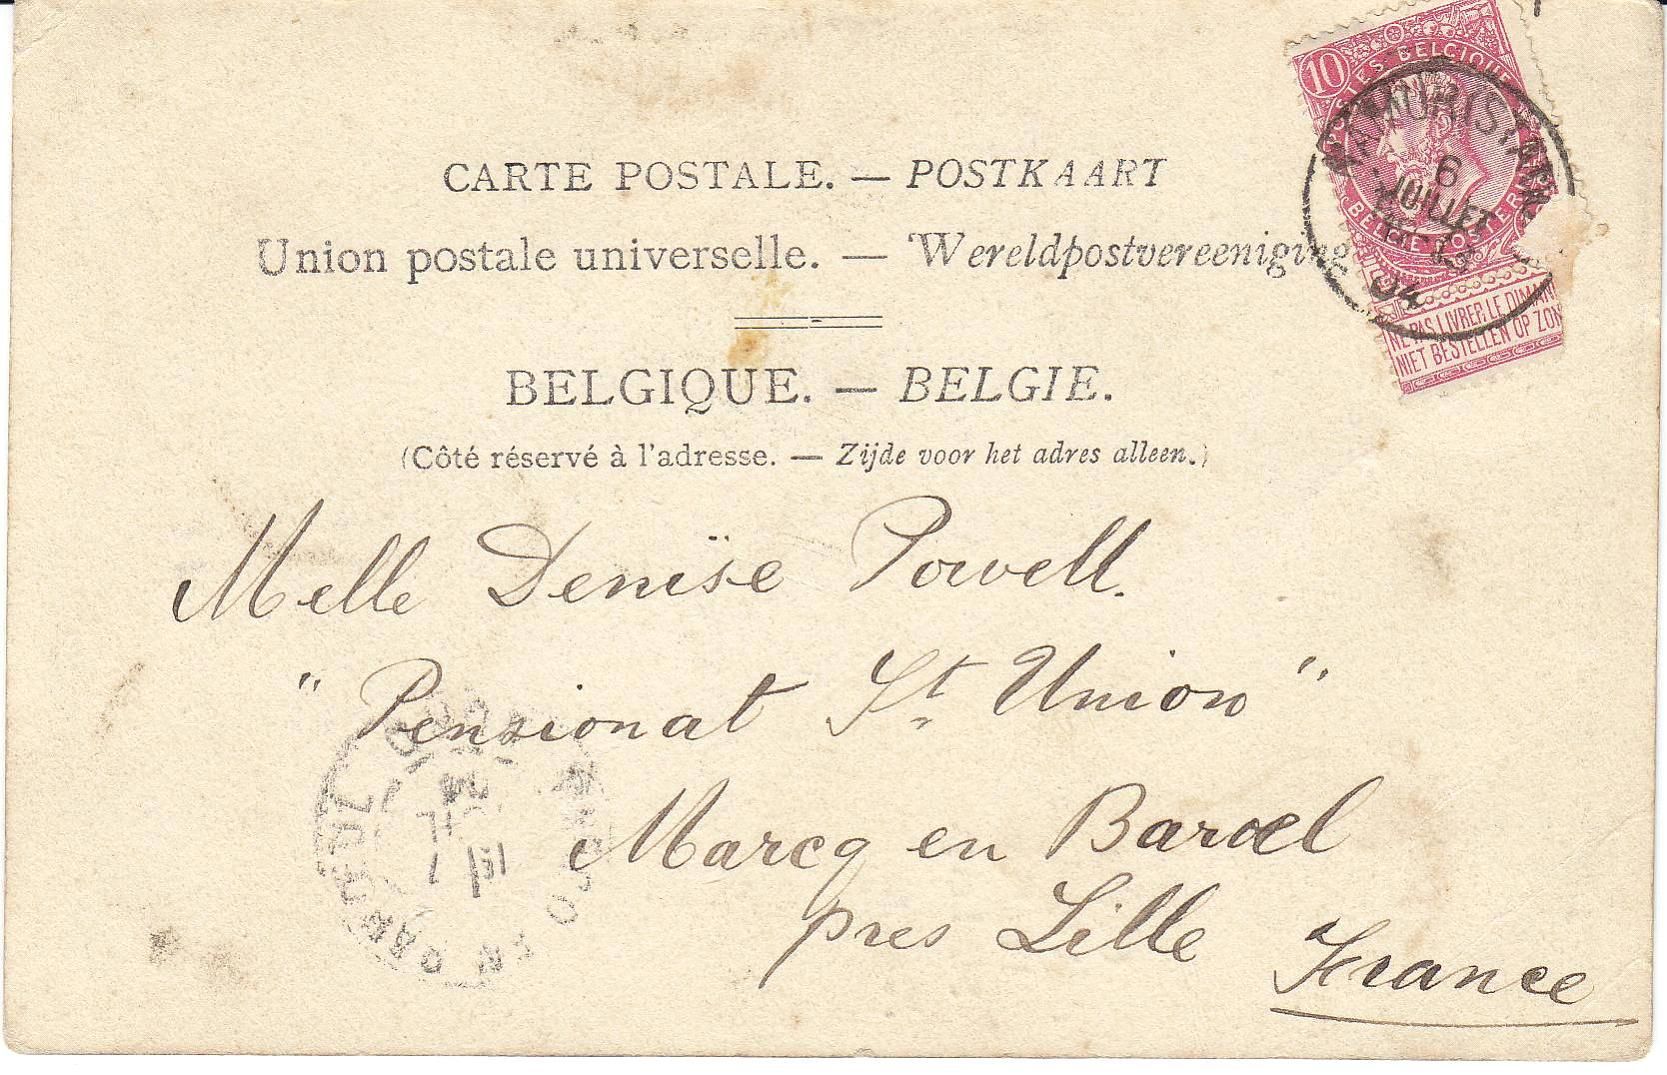 CARTE POSTALE. — POSTKAART
Union postale universelle. — Wereldpostvereeniging
BELGIQUE. — BELGIE.
(Côté réservé à l'adresse. — Zijde voor het adres alleen.)
10
POSTES BELGIQUE
NE PAS LIVRER LE DIMAN
NIET BESTELLEN OP ZON
6
JUILLET
04
Melle Denïse Powell.
"Pensionat St Union"
Marcq en Baroel
pres Lille
France